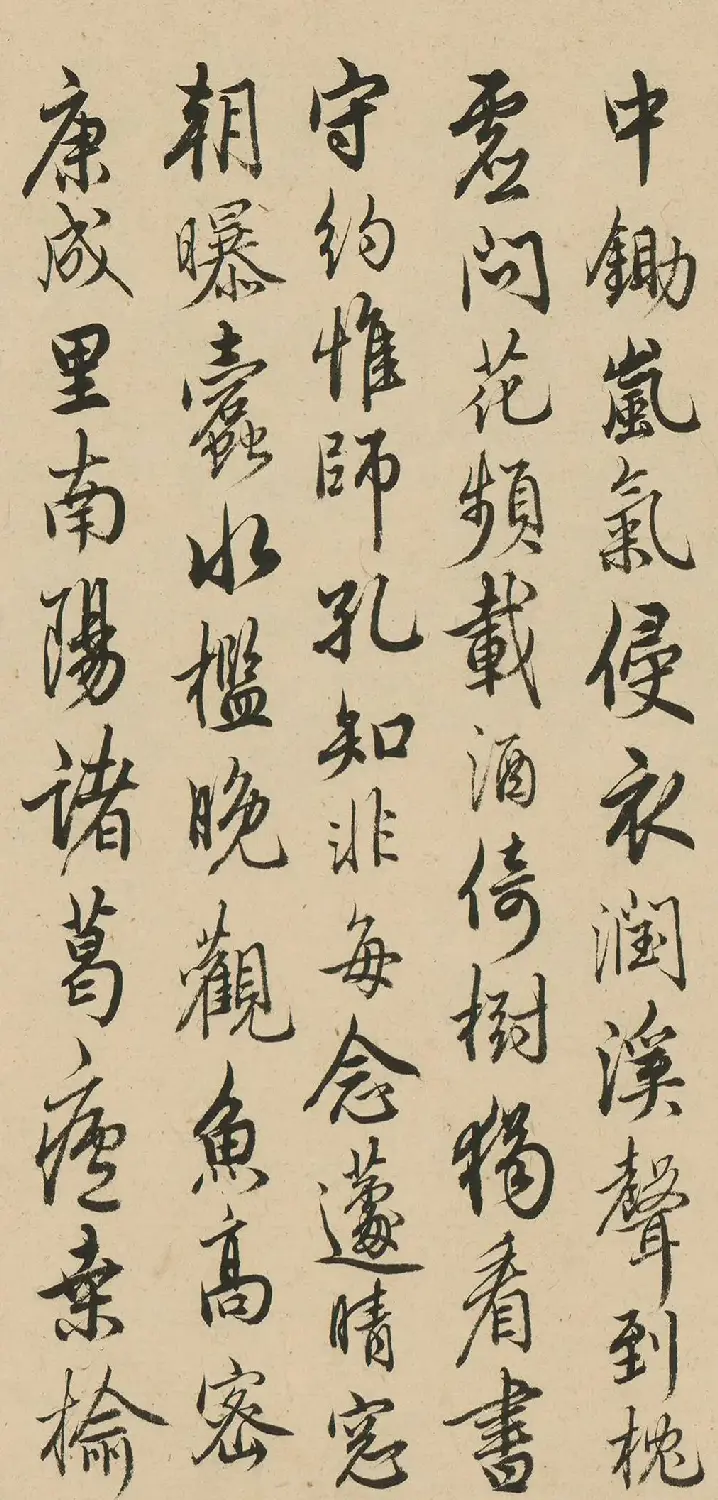 中鋤嵐氣侵衣潤溪聲到枕
虛問花頻載酒倚樹獨看書
守約惟師孔知非每念蘧晴窓
朝曝蠹水檻晚觀魚高密
康成里南陽諸葛廬桑榆